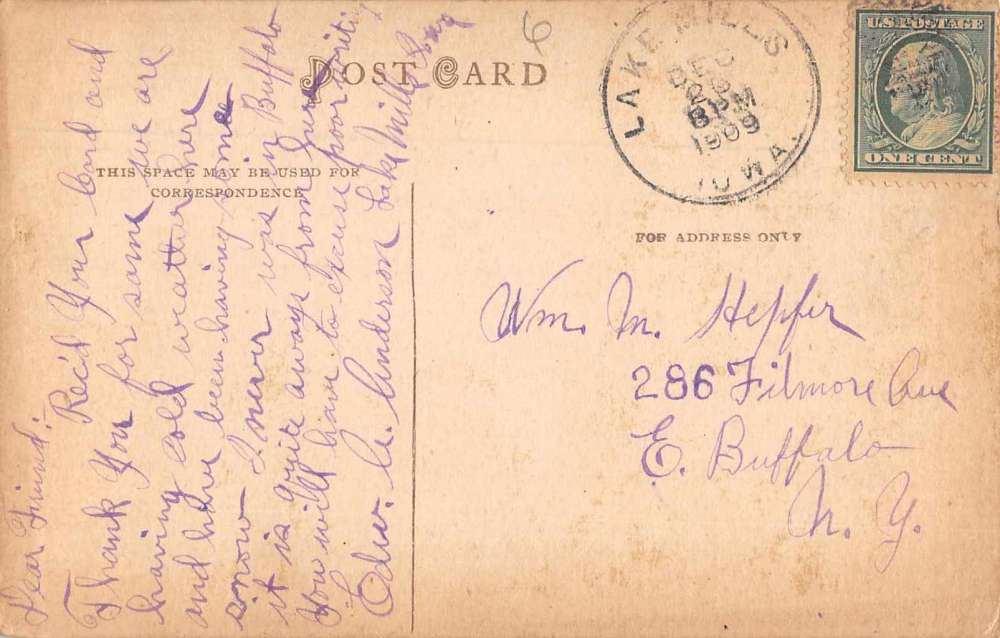 POST CARD
THIS SPACE MAY BE USED FOR
CORRESPONDENCE
Dear Friend:-
Rec'd Your Card and
Thank You for same we are
having cold weather here
and have been having some
snow I never was in Buffalo
it is quite aways from here
You will have to excuse poor writing
Edw. A. Anderson Lake Mills Iowa
6
LAKE MILLS
DEC
28
8 PM
1909
IOWA.
U.S. POSTAGE
ONE CENT
FOR ADDRESS ONLY
Wm. M. Hepfer
286 Filmore Ave
E. Buffalo
N. Y.